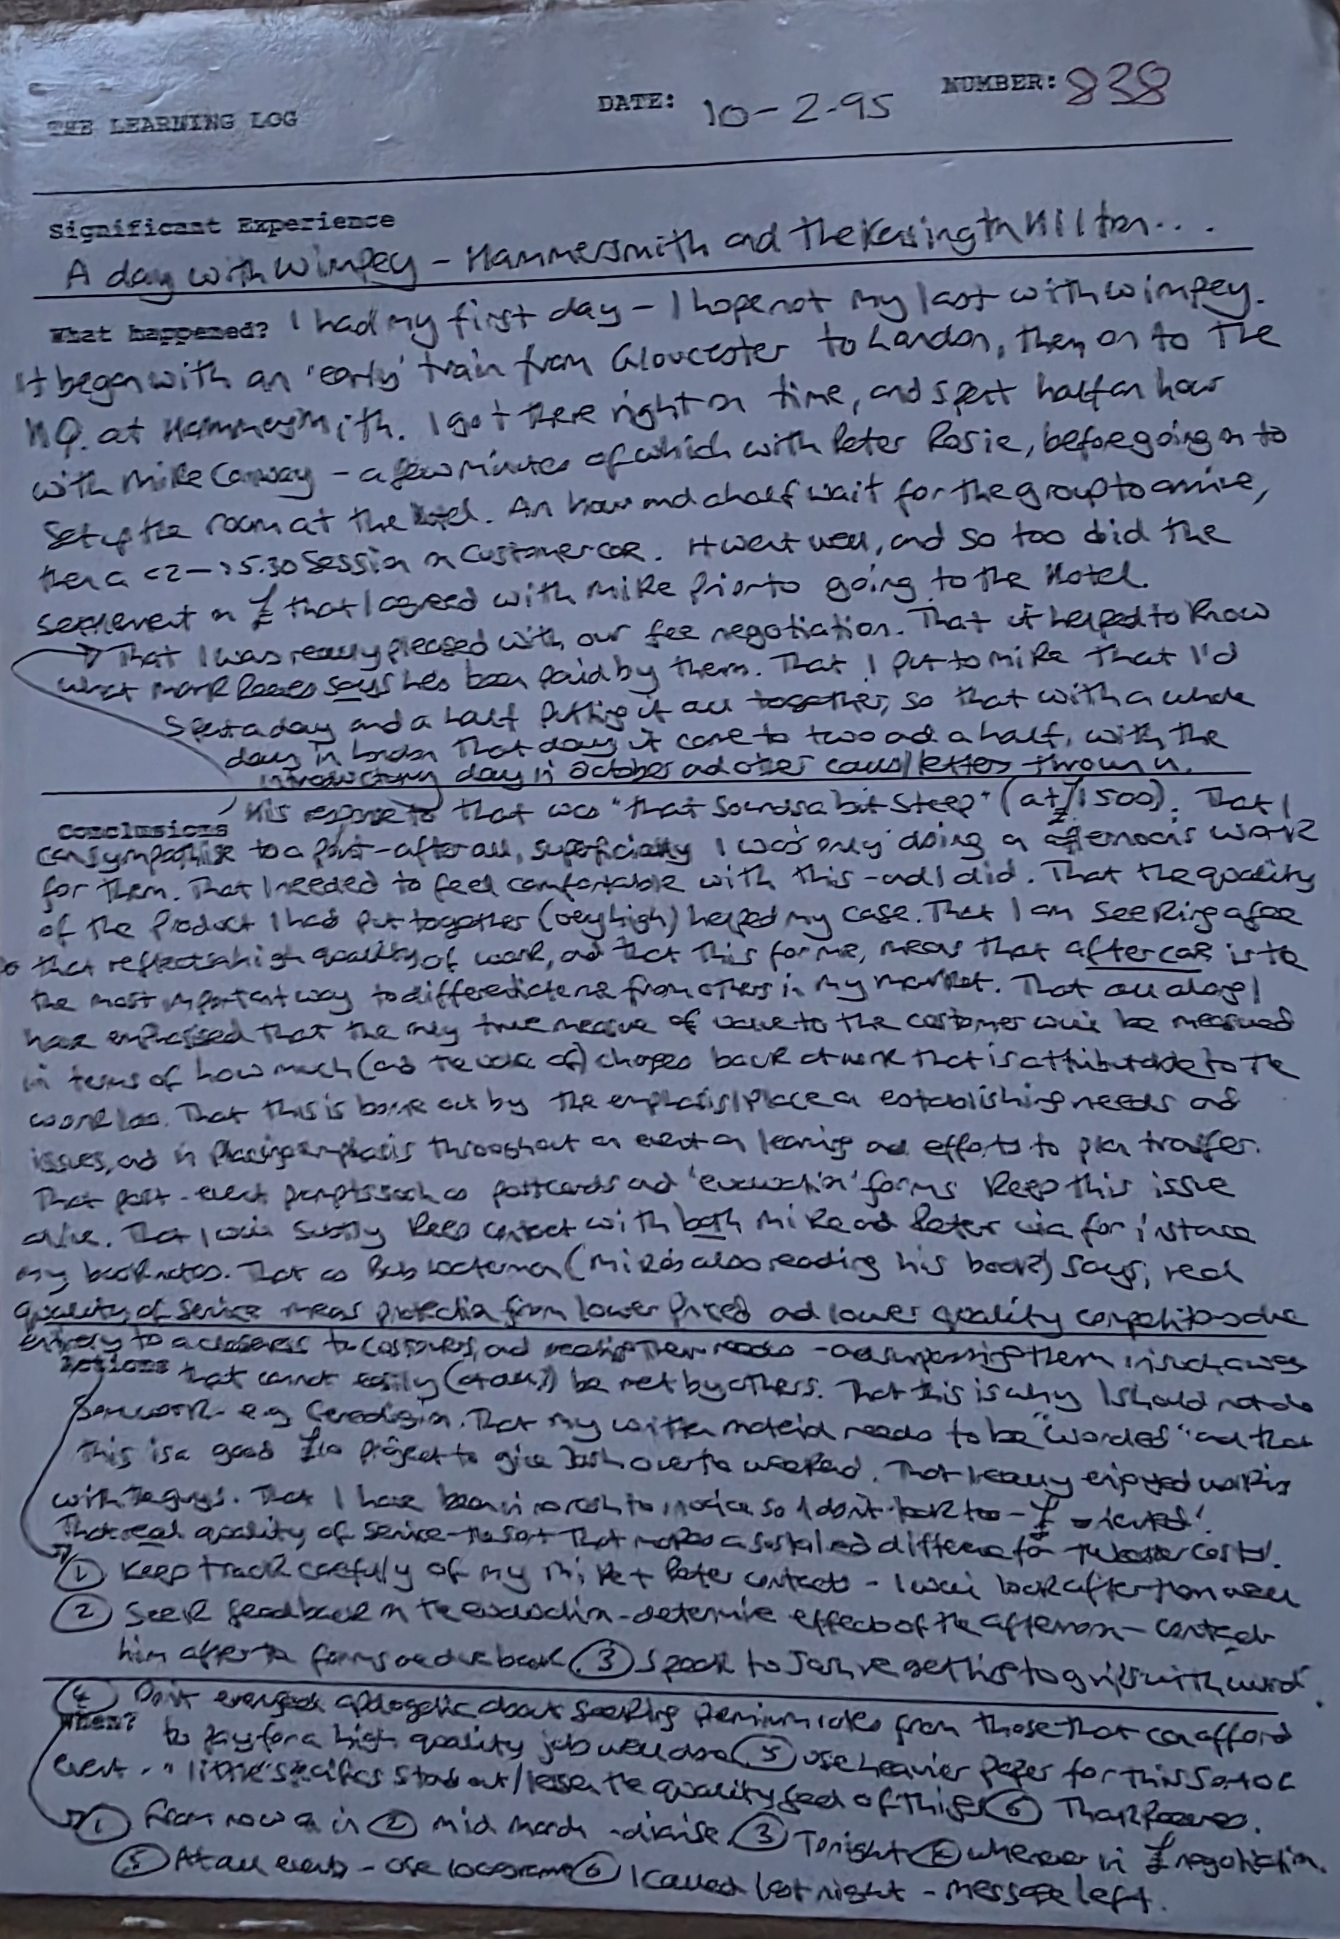 THE LEARNING LOG
DATE: 10-2-95
NUMBER: 838
Significant Experience
A day with Wimpey - Hammersmith and the Kensington Hilton...
What happened? I had my first day - I hope not my last with Wimpey.
It began with an 'early' train from Gloucester to London, then on to the
HQ. at Hammersmith. I got there right on time, and spent half an hour
with Mike Conway - a few minutes of which with Peter Rosie, before going on to
set up the room at the hotel. An hour and a half wait for the group to arrive,
then a <2 -> 5.30 session on customer care. It went well, and so too did the
settlement on £ that I agreed with Mike prior to going to the Hotel.
That I was really pleased with our fee negotiation. That it helped to know
what Mark says he's been paid by them. That I put to Mike that I'd
spent a day and a half putting it all together, so that with a whole
day in London that day it came to two and a half, with the
introductory day in October and other calls/letters thrown in.
Conclusions His response to that was "that sounds a bit steep" (at £1500). That I
can sympathise to a point - after all, superficially I was only doing an afternoon's work
for them. That I needed to feel comfortable with this - and I did. That the quality
of the product I had put together (very high) helped my case. That I am seeking a fee
that reflects a high quality of work, and that this for me, means that after care is the
the most important way to differentiate me from others in my market. That all along I
have emphasised that the only true measure of value to the customer will be measured
in terms of how much (and the value of) changes back at work that is attributable to the
workshop. That this is borne out by the emphasis I place on establishing needs and
issues, and in placing emphasis throughout an event on learning and efforts to plan transfer.
That post-event prompts such as postcards and 'evaluation' forms keep this issue
alive. That I will subtly keep contact with both Mike and Peter via for instance
my book notes. That as Bob (Mike is also reading his book?) says, real
quality of service means protection from lower priced and lower quality competitors due
entirely to a closeness to customers, and meeting their needs - and surprising them in such a way
Actions that cannot easily (at all) be met by others. That this is why I should not do
some work - e.g Ceredigion. That my written material needs to be "worded" and that
this is a good £10 project to give Josh over the weekend. That I really enjoyed working
with the guys. That I have been in no rush to invoice so I don't look too - £ oriented!
That real quality of service - the sort that makes a sustained difference for the costs!
1 Keep track carefully of my Mike + Peter contacts - I will look after them well
2 Seek feedback on the evaluation - determine effect of the afternoon - contact
him after the forms are due back. 3 Speak to Josh re getting to grips with word.
4 Don't even feel apologetic about seeking premium rates from those that can afford
When? to pay for a high quality job well done 5 Use heavier paper for this sort of
event - "little" specifics stand out/lessen the quality feel of things 6 Thank
1 From now on in 2 Mid March - diarise. 3 Tonight 4 Whenever in £ negotiation.
5 At all events - use 6 I called last night - message left.